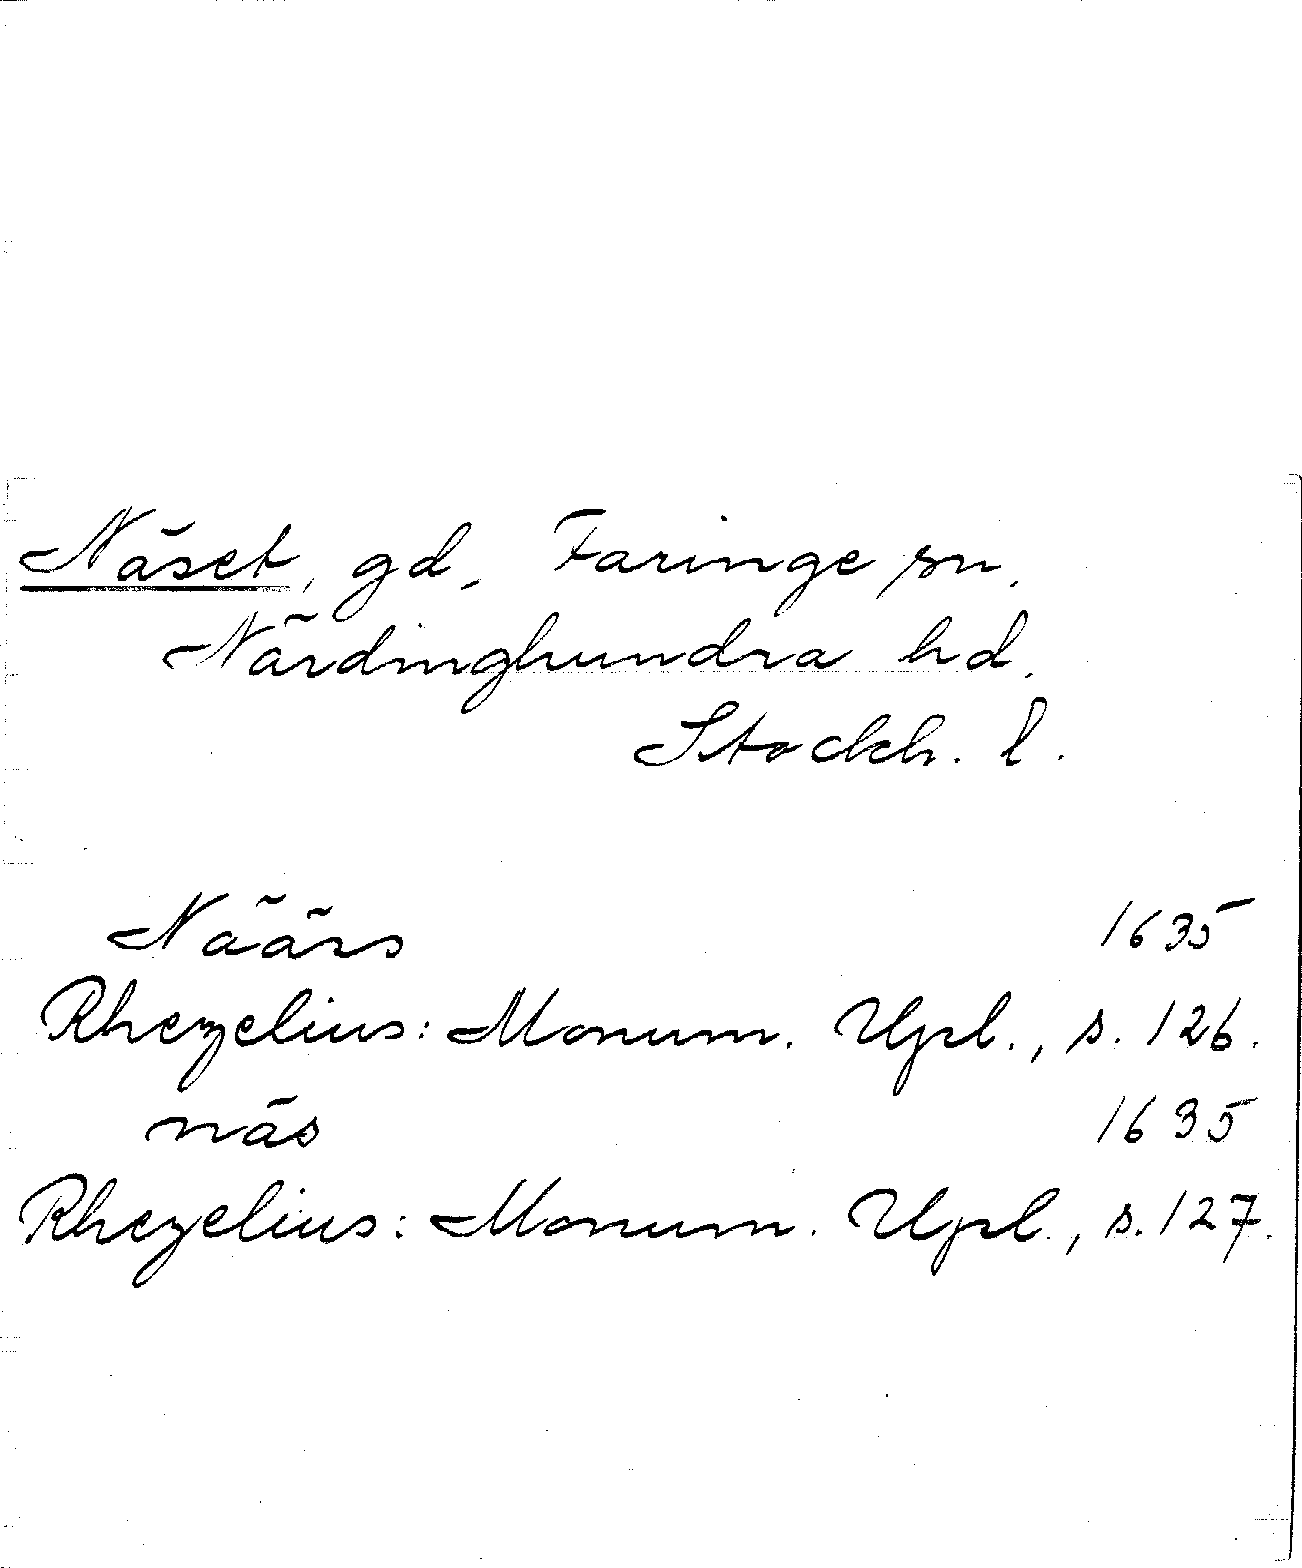 Näset, gd, Faringe sn,
Närdinghundra hd,
Stockh. l.
Näärs 1635
Rhezelius: Monum. Upl., s. 126.
näs 1635
Rhezelius: Monum. Upl., s. 127.